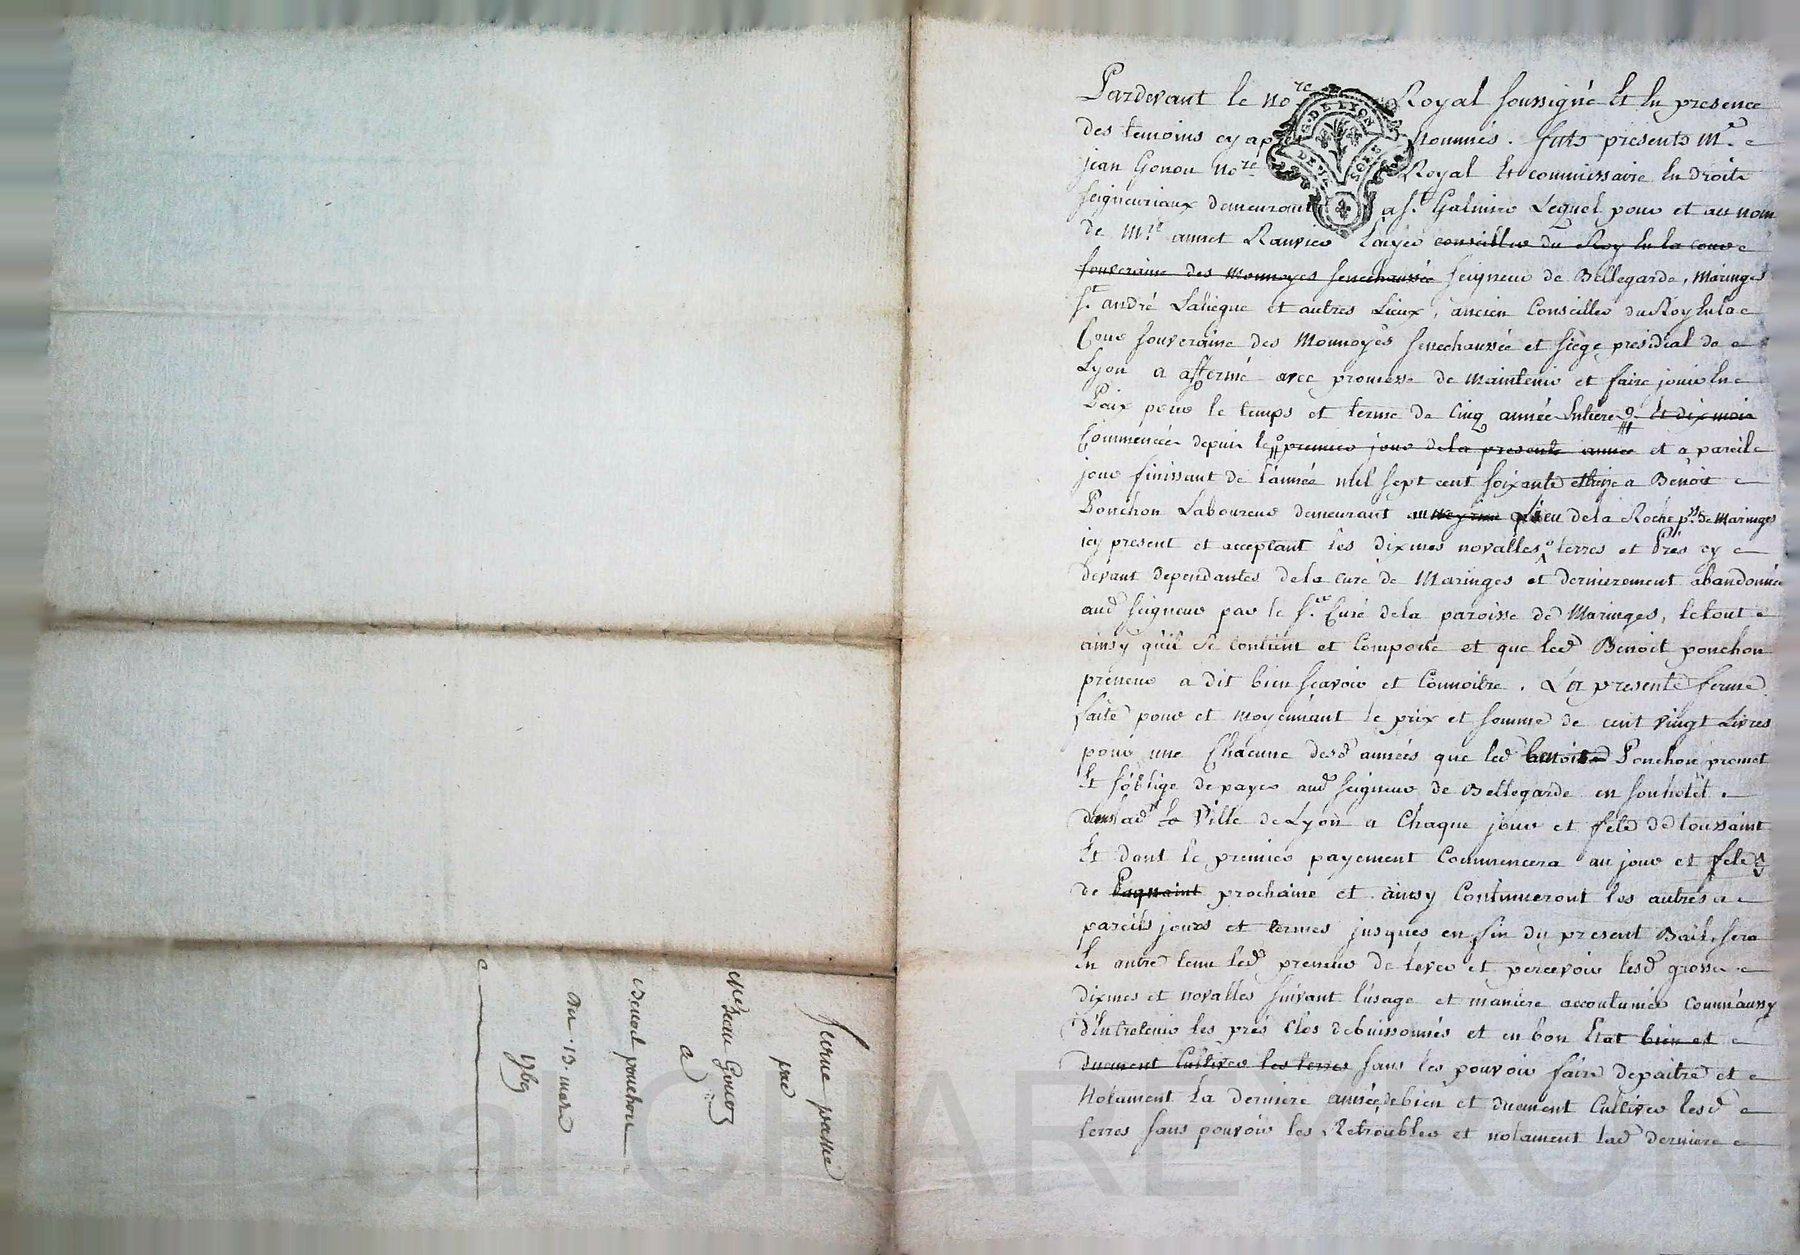 Pardevant le no.re Royal soussigné Et En presence
des temoins cy après nommés. futs presents M.e
jean Gonon no.re Royal Et commissaire En droits
seigneuriaux demeurant a S.t Galmier Lequel pour et au nom
de M.re annet Ranvier Layer conseiller du Roy En la cour
souveraine des Monnoyes senechaussée seigneur de Bellegarde, Maringes
S.t andré Laliegue et autres Lieux, ancien Conseiller du Roy En la
Cour souveraine des Monnoyes senechaussée et siège presidial de
Lyon a affermé avec promesse de maintenir et faire jouir En
Paix pour le temps et terme de Cinq année Entiere Et dix mois
Commencées depuis le premier jour de la presente année et a pareile
jour finissant de l'année mil sept cent soixante a Benoit
Ponchon Laboureur demeurant au lieu de la Roche p.sse de Maringes
icy present et acceptant les dixmes novalles terres et Prés cy
devant dependantes de la cure de Maringes et dernierement abandonnée
aud seigneur par le S.r Curé de la paroisse de Maringes, le tout
ainsy qu'il se contient et Comporte et que led Benoit ponchon
preneur a dit bien scavoir et Connoitre. La presente ferme
faite pour et moyennant le prix et somme de cent vingt Livres
pour une Chacune desd années que led benoit Ponchon promet
Et s'oblige de payer aud seigneur de Bellegarde en son hôtel
dans lad Ville de Lyon a Chaque jour et fete de toussaint
Et dont le premier payement Commencera au jour et fete
de toussaint prochaine et ainsy Continueront les autres a
pareils jours et termes jusques en fin du present Bail, sera
En outre tenu led preneur de lever et percevoir lesd grosse
dixmes et novalles suivant l'usage et maniere accoutumée comm'aussy
d'Entretenir les prés Clos debuissonnés et en bon Etat bien et
duement Cultiver les terres sans les pouvoir faire depaitre et
Notament la derniere année, de bien et duement Cultiver lesd
terres sans pouvoir les Retroubler et notament lad derniere
ferme passée
par
M.e Jean Gonon
a
Benoit ponchon
Du 13. mars
1769
Pascal CHAREYRON